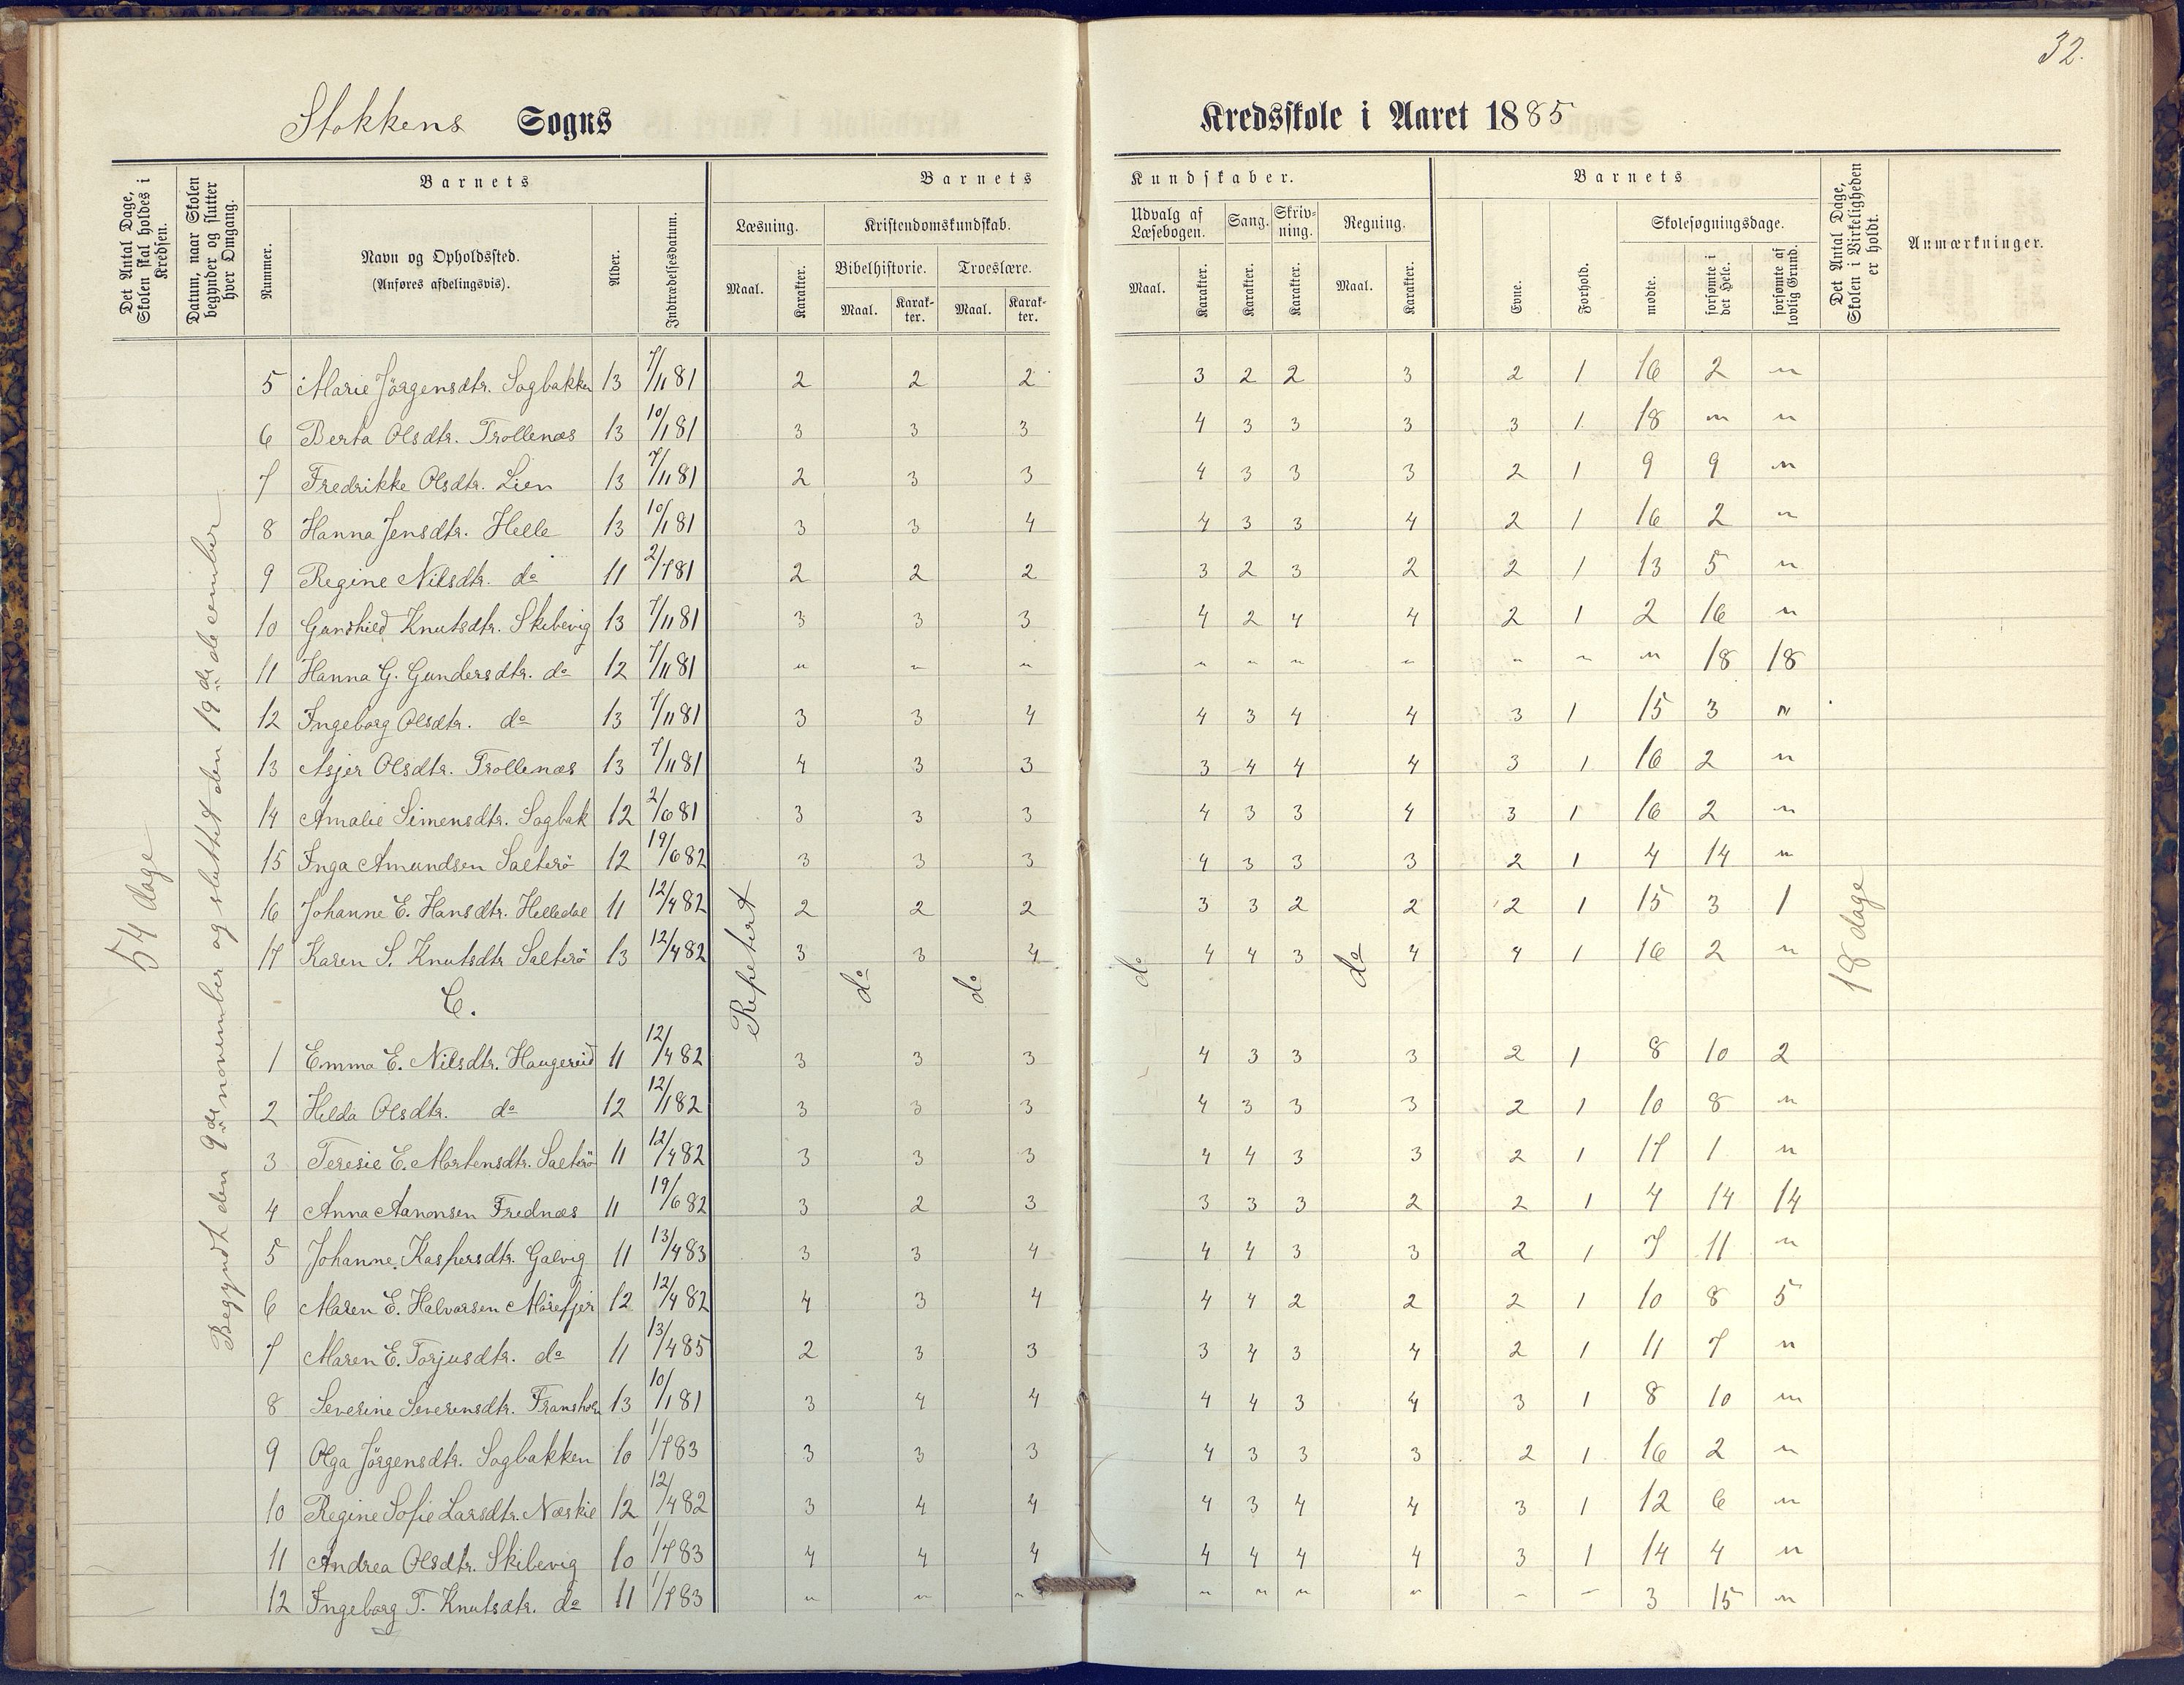 32.
Stokkens Sogns Kredsskole i Aaret 1885
Det Antal Dage, Skolen skal holdes i Kredsen.
Datum, naar Skolen begynder og slutter hver Omgang.
Barnets
Nummer.
Navn og Opholdssted.
(Anføres afdelingsvis).
Alder.
Indtrædelsesdatum.
Barnets Kundskaber.
Læsning. Maal. Karakter.
Kristendomskundskab.
Bibelhistorie. Maal. Karakter.
Troeslære. Maal. Karakter.
Udvalg af Læsebogen. Maal. Karakter.
Sang. Karakter.
Skrivning. Karakter.
Regning. Maal. Karakter.
Barnets
Evne.
Forhold.
Skolesøgningsdage.
mødte.
forsømte i det Hele.
forsømte af lovlig Grund.
Det Antal Dage, Skolen i Virkeligheden er holdt.
Anmærkninger.
54 dage
Begyndt den 9de november og sluttet den 19de december
5 Marie Jörgensdtr. Sagbakken 13 7/11 81 2 2 2 3 2 2 3 2 1 16 2 "
6 Berta Olsdtr. Trollenæs 13 10/1 81 3 3 3 4 3 3 3 3 1 18 " "
7 Fredrikke Olsdtr. Lien 13 7/11 81 2 3 3 4 3 3 3 2 1 9 9 "
8 Hanna Jensdtr. Helle 13 10/1 81 3 3 4 4 3 3 4 2 1 16 2 "
9 Regine Nilsdtr. do 11 2/7 81 2 2 2 3 2 3 2 2 1 13 5 "
10 Gunhild Knutsdtr. Skibevig 13 7/11 81 3 3 3 4 2 4 4 2 1 2 16 "
11 Hanna G. Gundersdtr. do 12 7/11 81 " " " " " " " " " " 18 18
12 Ingeborg Olsdtr. do 13 7/11 81 3 3 4 4 3 4 4 3 1 15 3 "
13 Asjer Olsdtr. Trollenæs 13 7/11 81 4 3 3 3 4 4 4 3 1 16 2 "
14 Amalie Simensdtr. Sagbak 12 2/6 81 3 3 3 4 3 3 4 3 1 16 2 "
15 Inga Amundsen Salterö 12 19/6 82 3 3 3 4 3 3 3 2 1 4 14 "
16 Johanne E. Hansdtr. Helledal 11 12/4 82 2 2 2 3 3 2 2 2 1 15 3 1
17 Karen S. Knutsdtr Salterö 13 12/4 82 3 3 4 4 4 3 4 4 1 16 2 "
Repetert do do do do 18 dage
C.
1 Emma E. Nilsdtr. Haugereid 11 12/4 82 3 3 3 4 3 3 3 2 1 8 10 2
2 Hilda Olsdtr. do 12 12/1 82 3 3 3 4 3 3 3 2 1 10 8 "
3 Teresie E. Mortensdtr. Salterö 11 12/4 82 3 3 3 4 4 3 3 2 1 17 1 "
4 Anna Aanonsen Frednæs 11 19/6 82 3 2 3 3 3 3 2 2 1 4 14 14
5 Johanne Kaspersdtr. Galvig 11 13/4 83 3 3 4 4 4 3 3 2 1 7 11 "
6 Maren E. Halvorsen Mörefjer 12 12/4 82 4 3 4 4 4 2 2 2 1 10 8 5
7 Maren E. Torjusdtr. do 11 13/4 85 2 3 3 3 4 3 4 2 1 11 7 "
8 Severine Severensdtr. Fransholm 13 10/1 81 3 4 4 4 4 3 4 3 1 8 10 "
9 Olga Jörgensdtr. Sagbakken 10 1/7 83 3 3 3 4 3 3 3 2 1 16 2 "
10 Regine Sofie Larsdtr. Næskie 12 12/4 82 3 4 4 4 3 4 4 3 1 12 6 "
11 Andrea Olsdtr. Skibevig 10 1/7 83 4 4 4 4 4 4 4 3 1 14 4 "
12 Ingeborg T. Knutsdtr. do 11 1/7 83 " " " " " " " " " 3 15 "